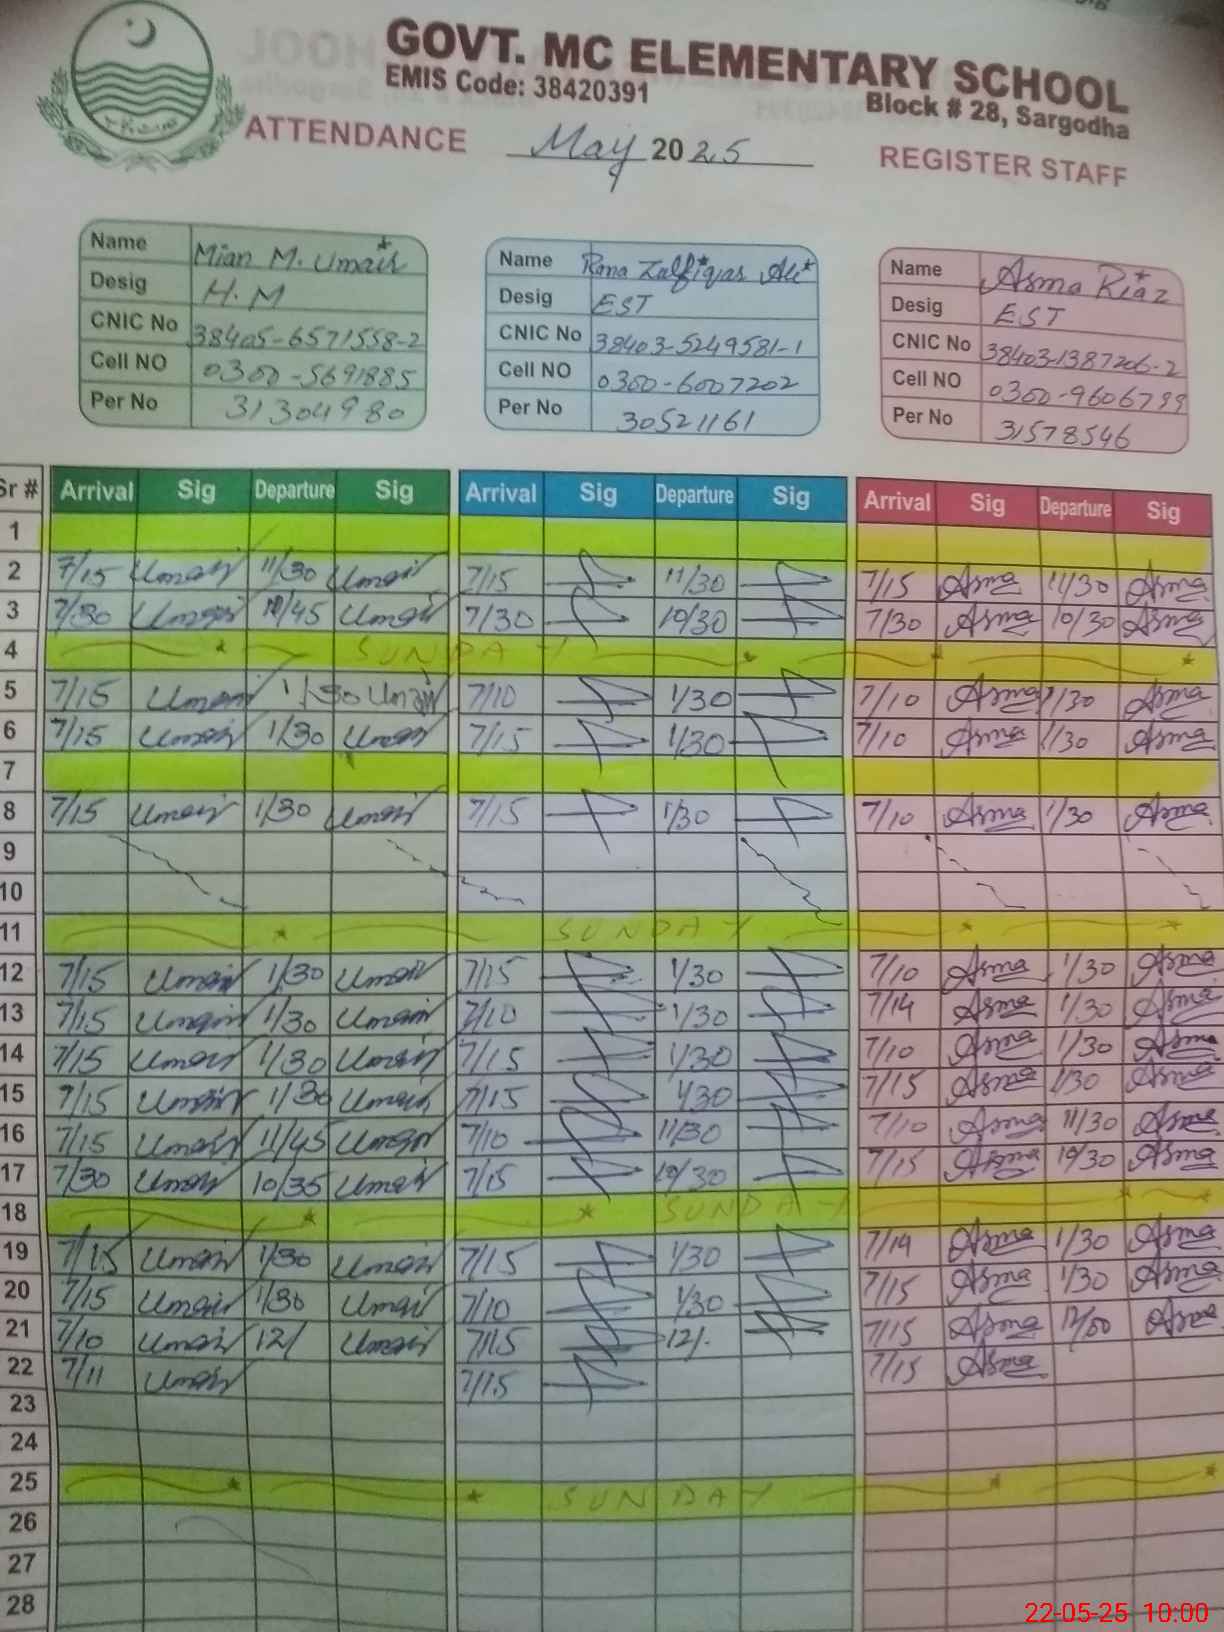 GOVT. MC ELEMENTARY SCHOOL
EMIS Code: 38420391
Block # 28, Sargodha
ATTENDANCE May 2025 REGISTER STAFF
Name Mian M. Umair
Desig H.M
CNIC No 38405-6571558-2
Cell NO 0300-5691885
Per No 31304980
Name Rana Zulfiqar Ali
Desig EST
CNIC No 38403-5249581-1
Cell NO 0300-6007202
Per No 30521161
Name Asma Riaz
Desig EST
CNIC No 38403-1387206-2
Cell NO 0300-9606799
Per No 31578546
Sr # Arrival Sig Departure Sig Arrival Sig Departure Sig Arrival Sig Departure Sig
1
2 7/15 Umair 11/30 Umair 7/15 11/30 7/15 Asma 11/30 Asma
3 7/30 Umair 10/45 Umair 7/30 10/30 7/30 Asma 10/30 Asma
4 SUNDAY
5 7/15 Umair 1/30 Umair 7/10 1/30 7/10 Asma 1/30 Asma
6 7/15 Umair 1/30 Umair 7/15 1/30 7/10 Asma 1/30 Asma
7
8 7/15 Umair 1/30 Umair 7/15 1/30 7/10 Asma 1/30 Asma
9
10
11 SUNDAY
12 7/15 Umair 1/30 Umair 7/15 1/30 7/10 Asma 1/30 Asma
13 7/15 Umair 1/30 Umair 7/10 1/30 7/14 Asma 1/30 Asma
14 7/15 Umair 1/30 Umair 7/15 1/30 7/10 Asma 1/30 Asma
15 7/15 Umair 1/30 Umair 7/15 1/30 7/15 Asma 1/30 Asma
16 7/15 Umair 11/45 Umair 7/10 11/30 7/10 Asma 11/30 Asma
17 7/30 Umair 10/35 Umair 7/15 10/30 7/15 Asma 10/30 Asma
18 SUNDAY
19 7/15 Umair 1/30 Umair 7/15 1/30 7/14 Asma 1/30 Asma
20 7/15 Umair 1/30 Umair 7/10 1/30 7/15 Asma 1/30 Asma
21 7/10 Umair 12/ Umair 7/15 12/. 7/15 Asma 12/00 Asma
22 7/11 Umair 7/15 7/15 Asma
23
24
25 SUNDAY
26
27
28
22-05-25 10:00